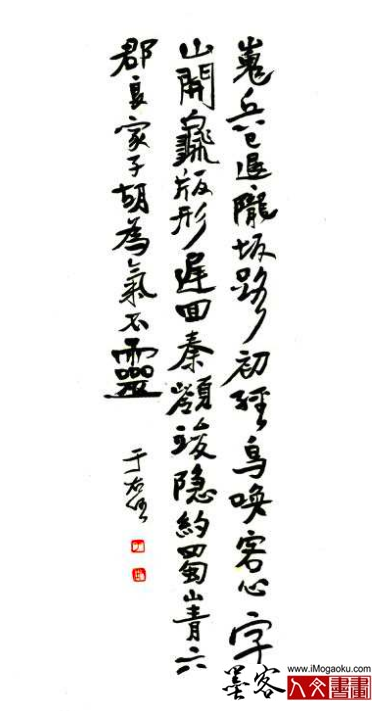 嵬兵已退隴坂路初經鳥喚客心字
山開龜版形遲回秦嶺峻隐約蜀山青六
郡良家子胡為氣不靈
于右任
墨客
www.iMogaoku.com
人文書畫